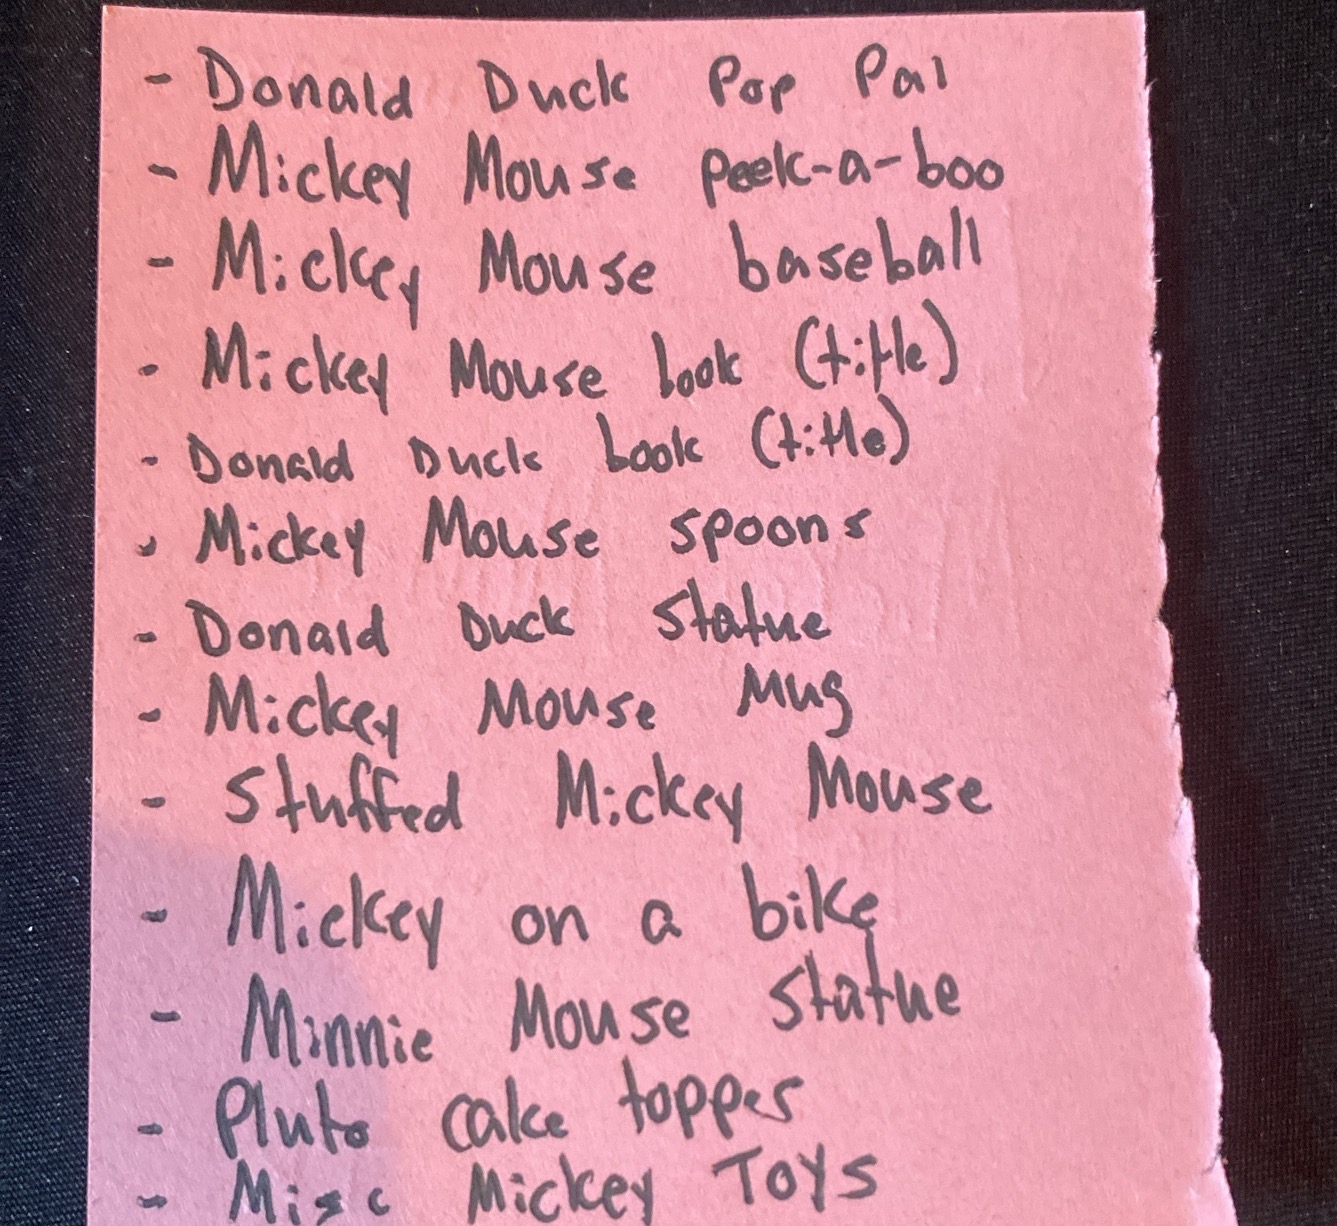 - Donald Duck Pop Pal
- Mickey Mouse peek-a-boo
- Mickey Mouse baseball
- Mickey Mouse book (title)
- Donald Duck book (title)
- Mickey Mouse spoons
- Donald Duck statue
- Mickey Mouse Mug
- Stuffed Mickey Mouse
- Mickey on a bike
- Minnie Mouse statue
- Pluto cake topper
- Misc Mickey Toys